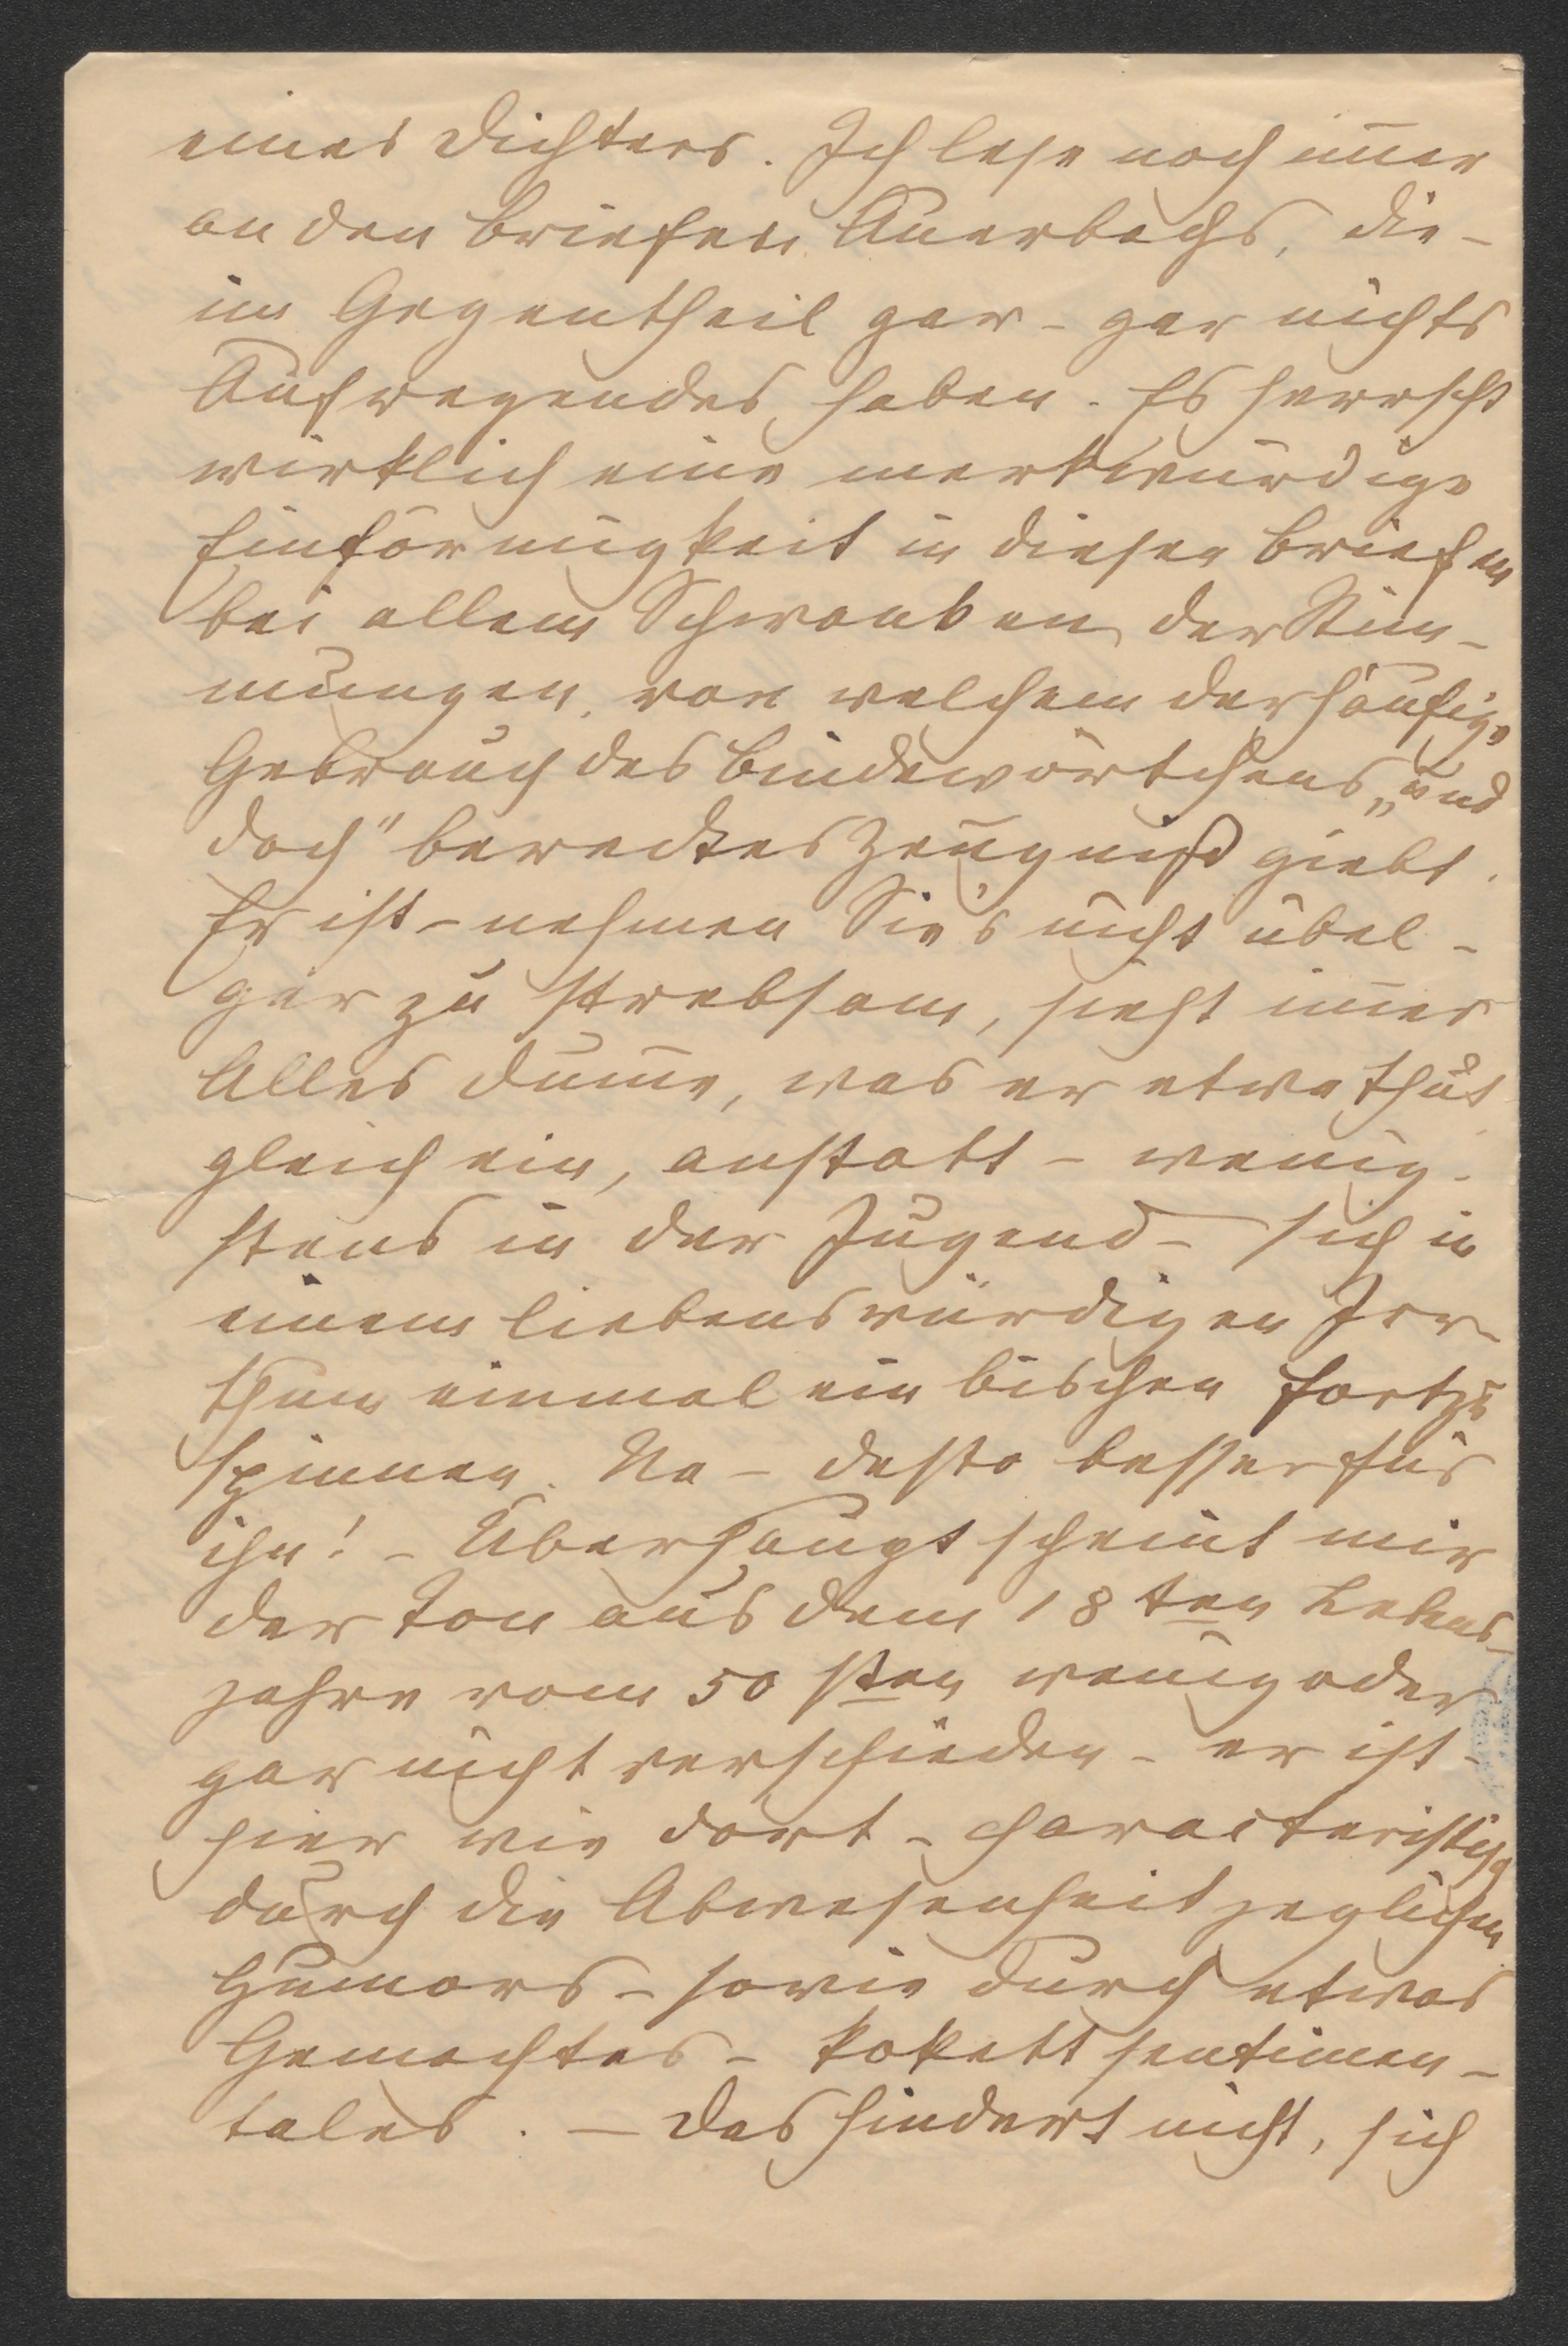 eines Dichters. Ich lese noch im̄er
an den Briefen Auerbachs, die –
im Gegentheil gar – gar nichts
Aufregendes haben. Es herrscht
wirklich eine merkwürdige
Einförmigkeit in diesen Briefen
bei allem Schwanken der Stim-
mungen, von welchem der häufige
Gebrauch des Bindewörtchens „und
doch" beredtes Zeugniß giebt.
Er ist – nehmen Sie's nicht übel –
gar zu strebsam, sieht im̄er
Alles Dum̄e, was er etwa thut
gleich ein, anstatt – wenig-
stens in der Jugend – sich in
einem liebenswürdigen Irr-
thum einmal ein bischen fortzu
spinnen. Na – desto besser für
ihn! – Überhaupt scheint mir
der Ton aus dem 18 ten Lebens-
jahre vom 50 sten wenig oder
gar nicht verschieden – er ist –
hier wie dort – characteristisch
durch die Abwesenheit jeglichen
Humors – sowie durch etwas
Gemachtes – kokett sentimen-
tales. – Das hindert nicht, sich